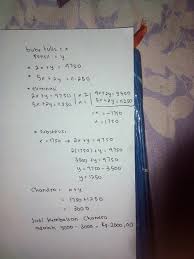 buku tulis = x
pensil = y
• 2x + y = 4750
• 5x + 2y = 11.250
• Eliminasi
2x + y = 4750 | x2 | 4x + 2y = 9500
5x + 2y = 11250 | x1 | 5x + 2y = 11250
-x = -1750
x = 1750
• Substitusi
x = 1750 → 2x + y = 4750
2(1750) + y = 4750
3500 + y = 4750
y = 4750 - 3500
y = 1250
Chandra = x + y
= 1750 + 1250
= 3000
Jadi kembalian Chandra
adalah 5000 - 3000 = Rp. 2000,00